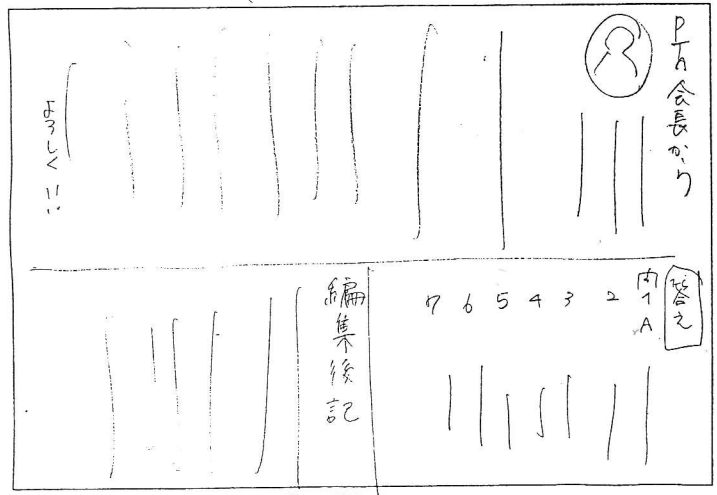 PTA会長から
よろしく!!
答え
内1A
2
3
4
5
6
7
編集後記